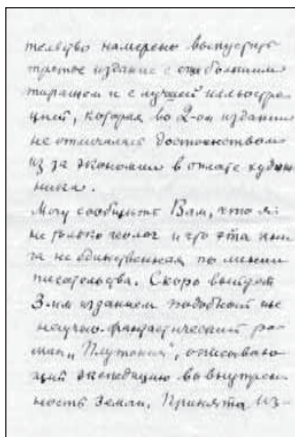 тельство намерено выпустить
третье издание с еще большим
тиражом и с лучшей иллюстра
цией, которая во 2-ом издании
не отличается достоинством
из за экономии в оплате худож
ника.
Могу сообщить Вам, что я
не только геолог и что эта кни
га не единственная по линии
писательства. Скоро выйдет
3им изданием подобный же
научно-фантастический ро-
ман „Плутония", описываю-
щий экспедицию во внутрен-
ность земли. Принята из-